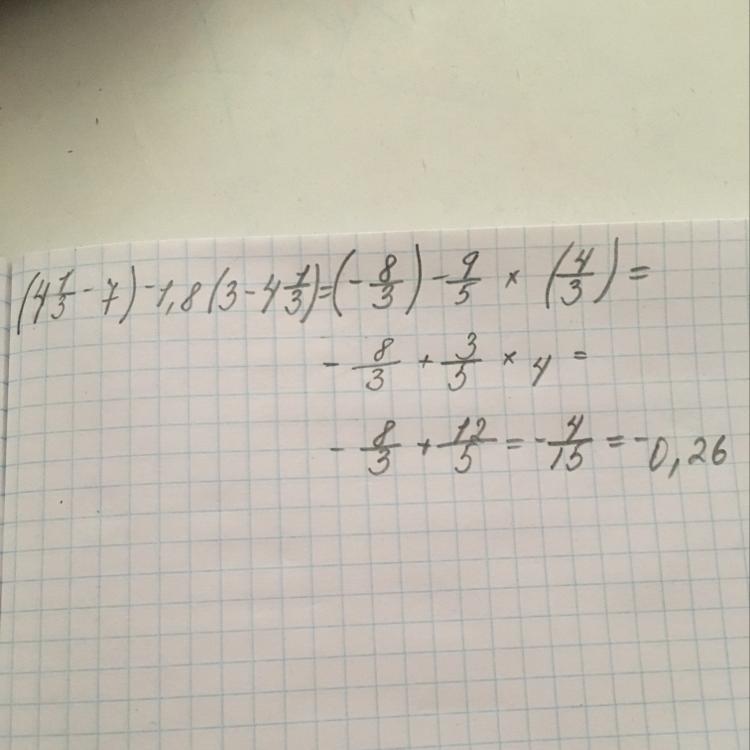 (4 1/3 - 7) - 1,8 (3 - 4 1/3) = (- 8/3) - 9/5 × (4/3) =
- 8/3 + 3/5 × 4 =
- 8/3 + 12/5 = - 4/15 = - 0,26